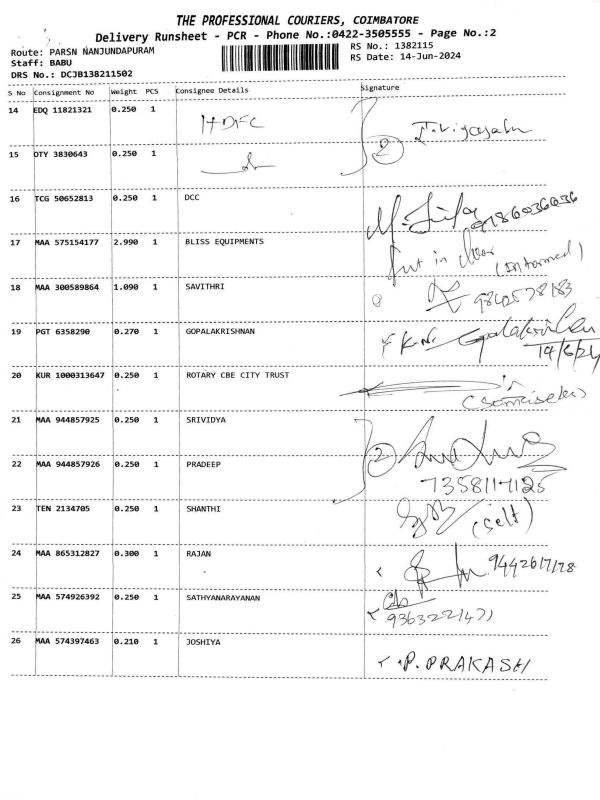 THE PROFESSIONAL COURIERS, COIMBATORE
Delivery Runsheet - PCR - Phone No.:0422-3505555 - Page No.:2
Route: PARSN NANJUNDAPURAM
RS No.: 1382115
Staff: BABU
RS Date: 14-Jun-2024
DRS No.: DCJB138211502
S No Consignment No Weight PCS Consignee Details Signature
14 EDQ 11821321 0.250 1 HDFC 2
15 OTY 3830643 0.250 1
16 TCG 50652813 0.250 1 DCC
17 MAA 575154177 2.990 1 BLISS EQUIPMENTS Put in door (Informed)
18 MAA 300589864 1.090 1 SAVITHRI
19 PGT 6358290 0.270 1 GOPALAKRISHNAN K.N. Gopalakrishnan
14/6/24
20 KUR 1000313647 0.250 1 ROTARY CBE CITY TRUST
21 MAA 944857925 0.250 1 SRIVIDYA 2
22 MAA 944857926 0.250 1 PRADEEP 7358117125
23 TEN 2134705 0.250 1 SHANTHI (self)
24 MAA 865312827 0.300 1 RAJAN 9442617178
25 MAA 574926392 0.250 1 SATHYANARAYANAN 9363221471
26 MAA 574397463 0.210 1 JOSHIYA P. PRAKASH